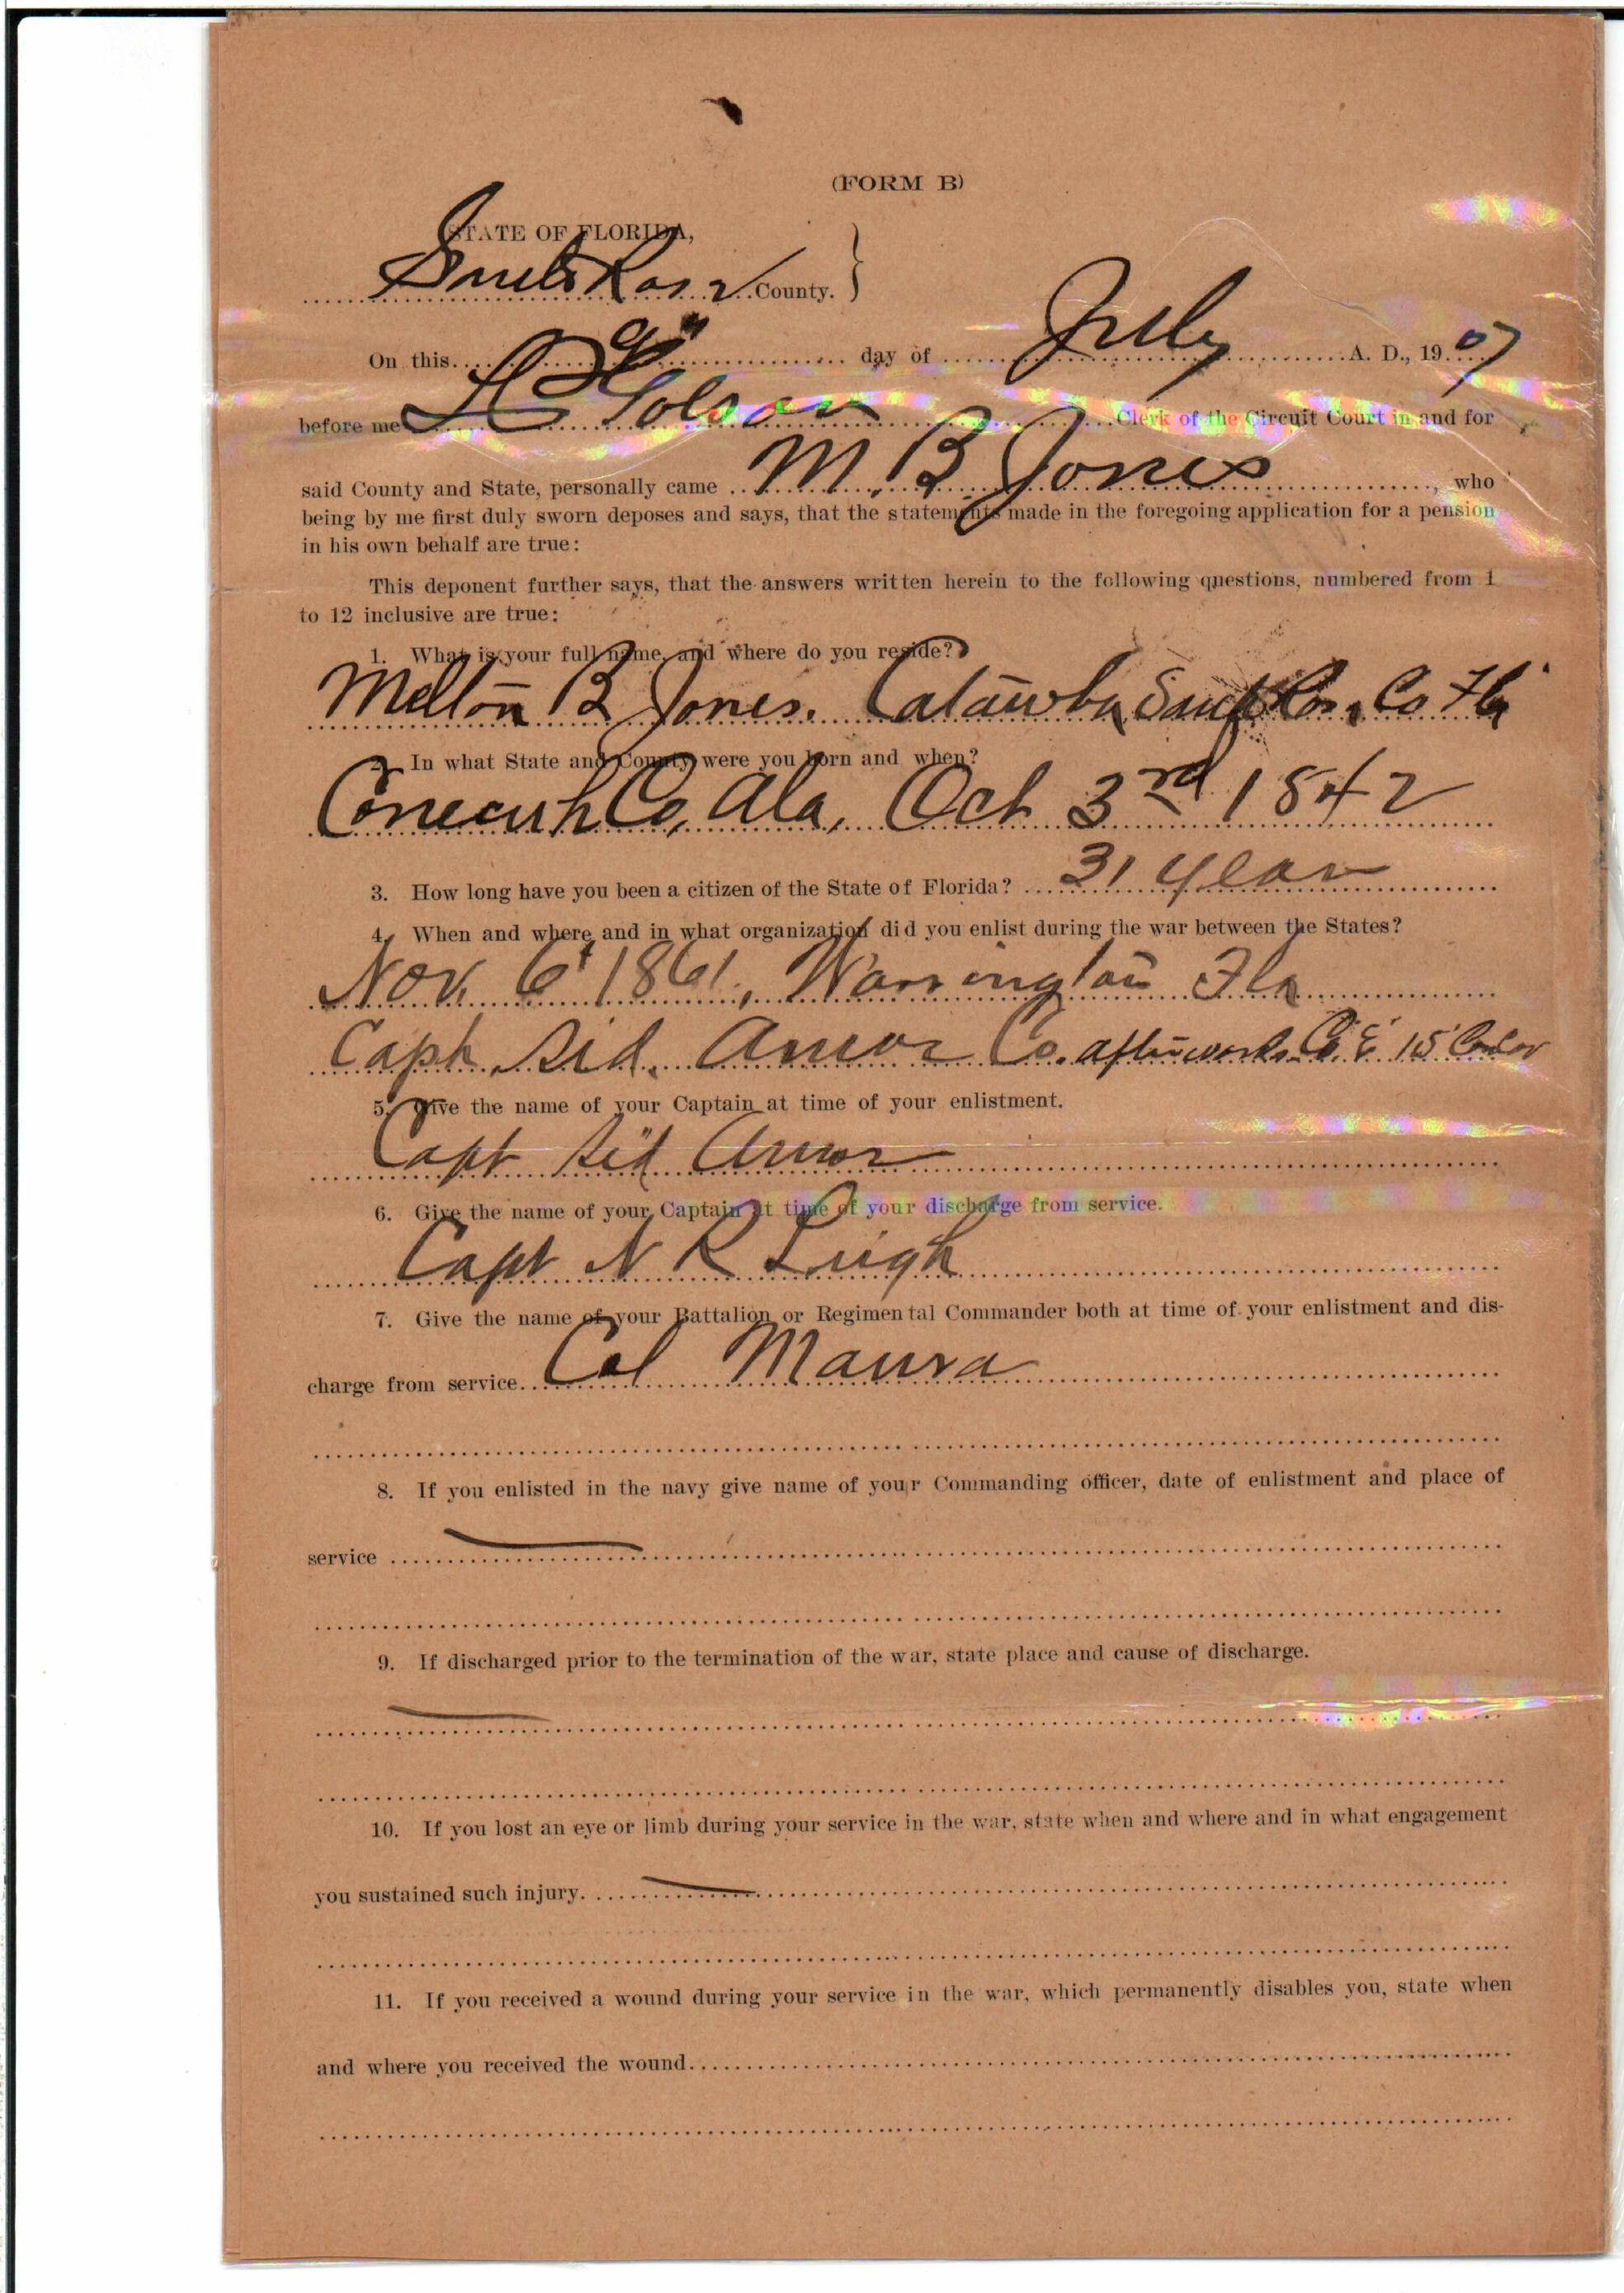 (FORM B)
STATE OF FLORIDA,
Santa Rosa County.
On this 9" day of July A. D., 1907
before me Golson Clerk of the Circuit Court in and for
said County and State, personally came M. B Jones, who
being by me first duly sworn deposes and says, that the statements made in the foregoing application for a pension
in his own behalf are true:
This deponent further says, that the answers written herein to the following questions, numbered from 1
to 12 inclusive are true:
1. What is your full name, and where do you reside?
Melton B Jones. Catawba, Co Fla
2. In what State and County were you born and when?
Conecuh Co, Ala, Oct 3rd 1842
3. How long have you been a citizen of the State of Florida? 31 year
4. When and where and in what organization did you enlist during the war between the States?
Nov. 6" 1861, Warrington Fla
Capt. Co. afterwards Co. E. 15
5. Give the name of your Captain at time of your enlistment.
Capt
6. Give the name of your Captain at time of your discharge from service.
Capt N R Leigh
7. Give the name of your Battalion or Regimental Commander both at time of your enlistment and dis-
charge from service. Col Maura
8. If you enlisted in the navy give name of your Commanding officer, date of enlistment and place of
service
9. If discharged prior to the termination of the war, state place and cause of discharge.
10. If you lost an eye or limb during your service in the war, state when and where and in what engagement
you sustained such injury.
11. If you received a wound during your service in the war, which permanently disables you, state when
and where you received the wound.